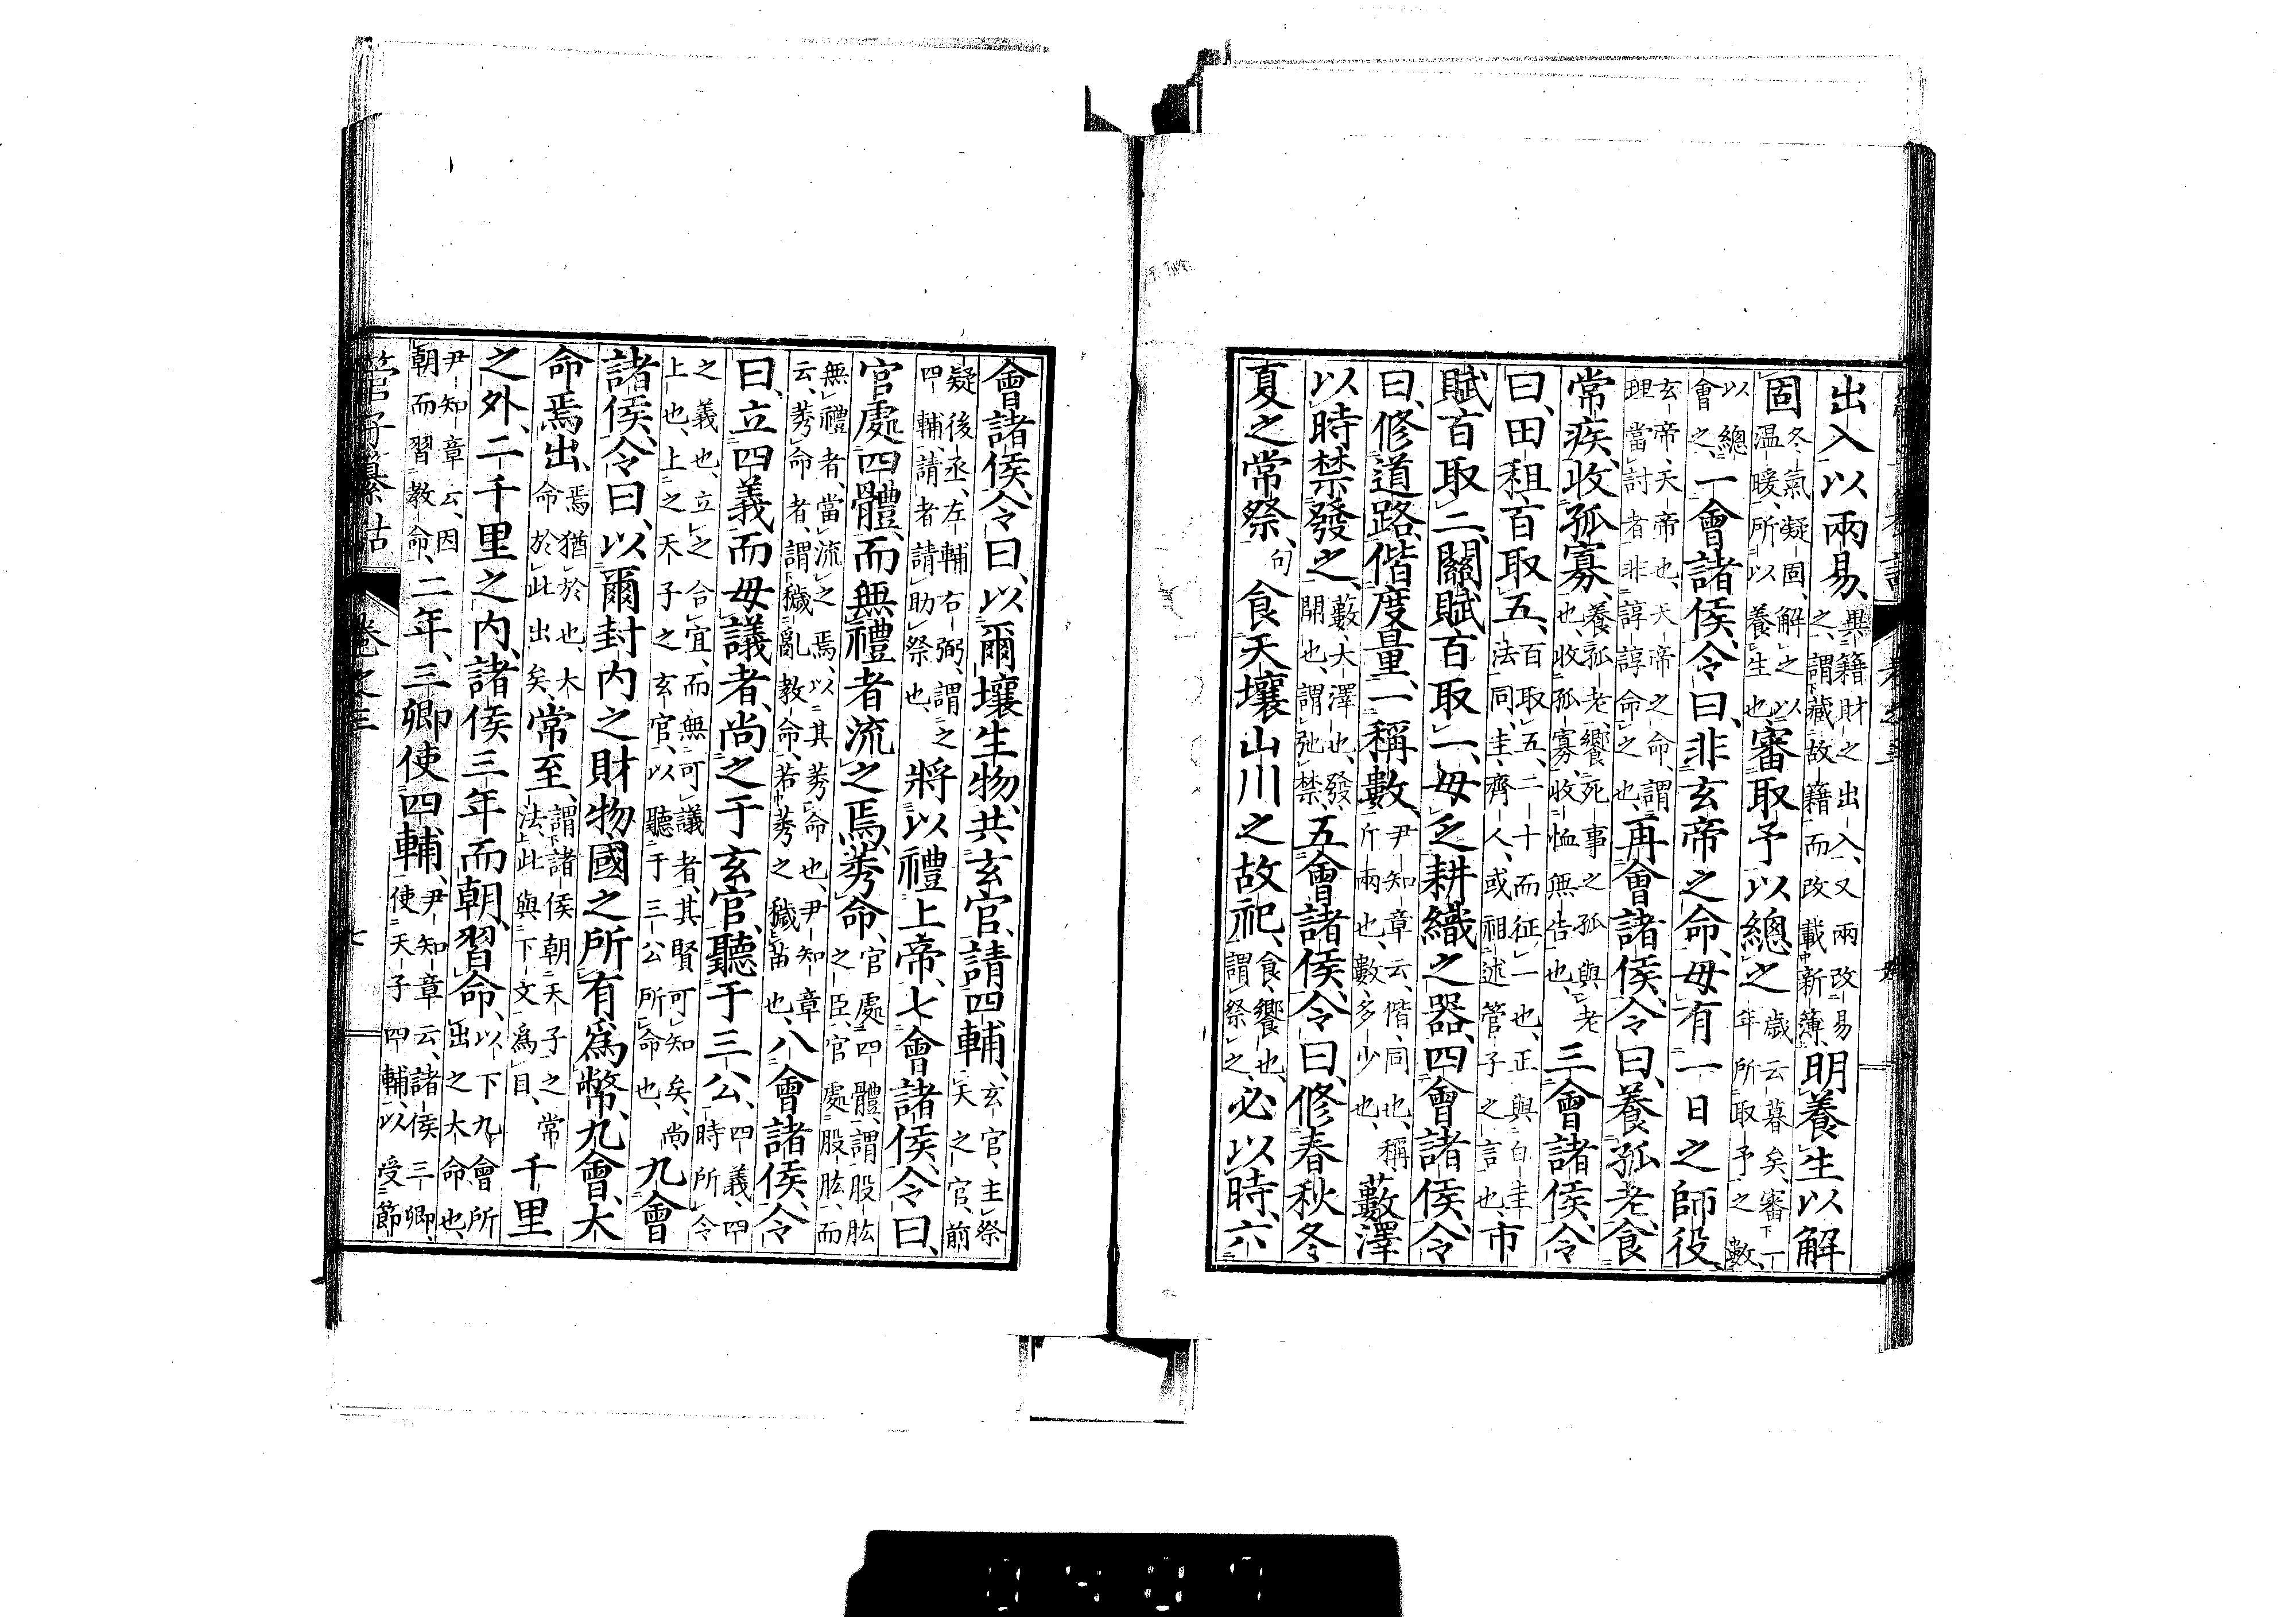 出入以兩易、異籍財之出入、又兩改易之、謂藏故籍而改載新簿、明養生以解
固冬氣凝固、解之以溫暖、所以養生也審取予以總之歲云暮矣、審下一年所取予之數、
以總會之、一會諸侯、令曰、非玄帝之命、毋有一日之師役、
玄帝、天帝也、天帝之命、謂理當討者非諄諄命之也、再會諸侯、令曰、養孤老、食
常疾、收孤寡、養孤老、饗死事之孤與老也、收孤寡、收恤無告也、三會諸侯、令
曰、田租百取五、百取五、二十而征一也、正與白圭法同、圭、齊人、或祖述管子之言也、市
賦百取二、關賦百取一、毋乏耕織之器、四會諸侯、令
曰、修道路、偕度量、一稱數、尹知章云、偕、同也、稱斤兩也、數、多少也、藪澤
以時禁發之、藪、大澤也、發、開也、謂弛禁、五會諸侯、令曰、修春秋冬
夏之常祭、句食天壤山川之故祀、食、饗也、謂祭之、必以時、六
會諸侯、令曰、以爾壤生物、共玄官、請四輔、玄官、主祭天之官、前
疑後丞、左輔右弼、謂之四輔、請者請助祭也、將以禮上帝、七會諸侯、令曰、
官處四體、而無禮者流之焉、莠命、官處四體、謂股肱之臣、官處股肱、而
無禮者、當流之焉、以其莠命也、尹知章云、莠命者、謂穢亂教命、若莠之穢苗也、八會諸侯、令
曰、立四義而毋議者、尚之于玄官、聽于三公、四義、四時所令
之義也、立之合宜、而無可議者、其賢可知矣、尚上也、上之天子之玄官、以聽于三公所命也、九會
諸侯、令曰、以爾封内之財物、國之所有爲幣、九會、大
命焉出、焉猶於也、大命於此出矣、常至謂諸侯朝天子之常法、此與下文爲目、千里
之外、二千里之内、諸侯三年而朝、習命、以下九會所出之大命也、
尹知章云、因朝而習教命、二年、三卿使四輔、尹知章云、諸侯三卿、使天子四輔、以受節
管子纂詁 卷之三 七